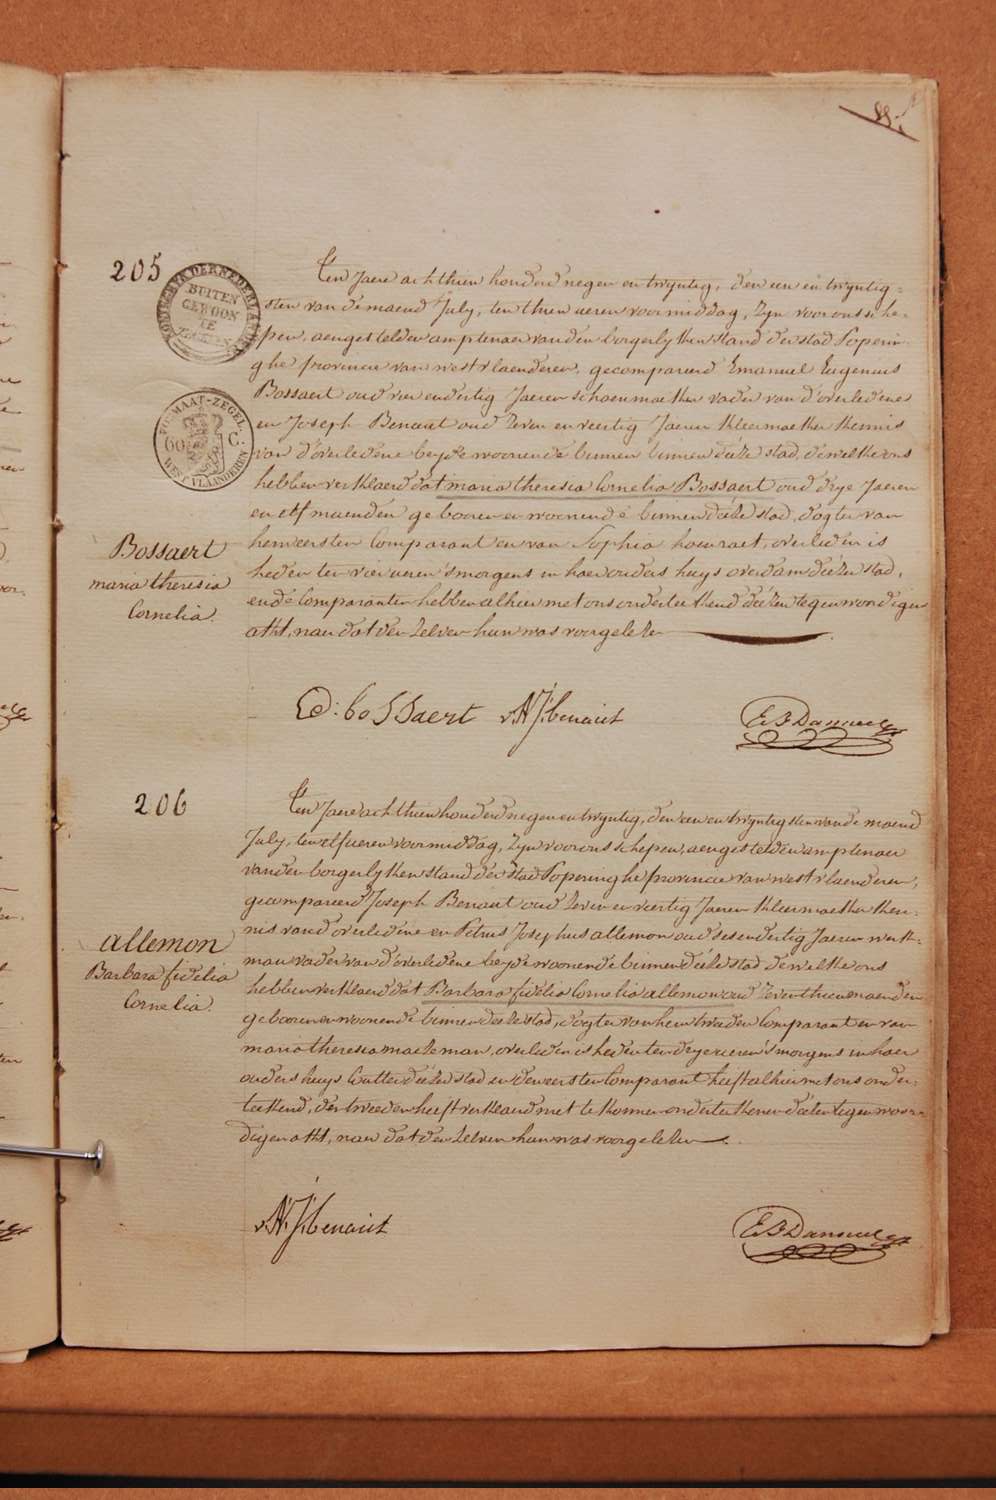 205
KONINGRYK DER NEDERLANDEN
BUITEN
GEWOON
FORMAAT-ZEGEL
60 C.
WEST VLAANDEREN
Ten Jaere achthien honderd negen en twyntig, den een en twyntig=
sten van de maend July, ten thien ueren voormiddag, Zyn voor ons sche=
pen, aengestelden amptenaer van den borgerlyken stand der stad Poperin
ghe provincie van westvlaenderen, gecompareerd Emanuel Eugenius
Bossaert oud vier en dertig Jaeren schoenmaeker vader van d'overledene
en Joseph Benaut oud Zeven en veertig Jaeren kleermaeker kennis
van d'overledene beyde woonende binnen binnen deéze stad, dewelke ons
hebben verklaerd dat maria theresia Cornelia Bossaert oud drye Jaeren
en elf maenden geboren en woonende binnen deéze stad, dogter van
hem eersten Comparant en van Sophia hoenraet, overleden is
heden ten vier ueren 'smorgens in haer ouders huys overdam deézer stad,
en de Comparanten hebben alhier met ons onderteekend deézen tegenwoordigen
akt, naer dat den zelven hun was voorgelezen
Bossaert
maria theresia
Cornelia
E: bossaert J: benaut
206
Ten Jaere achthien honderd negen en twyntig, den een en twyntigsten van de maend
July, ten elf ueren voormiddag, Zyn voor ons schepen, aengestelden amptenaer
van den borgerlyken stand der stad Poperinghe provincie van westvlaenderen,
gecompareerd Joseph Benaut oud Zeven en veertig Jaeren kleermaeker ken=
nis van d'overledene en Petrus Josephus allemon oud ses en dertig Jaeren werk=
man vader van d'overledene beyde woonende binnen deéze stad dewelke ons
hebben verklaerd dat Barbara fidelia Cornelia allemon oud Zeventhien maenden
geboren en woonende binnen deéze stad, dogter van hem tweeden Comparant en van
maria theresia maeleman, overleden is heden ten drye ueren 'smorgens in haer
ouders huys deézer stad en den eersten Comparant heeft alhier met ons onder=
teekend, den tweeden heeft verklaerd niet te konnen onderteekenen deézen tegenwoor=
digen akt, naer dat den zelven hun was voorgelezen
allemon
Barbara fidelia
Cornelia
J: benaut